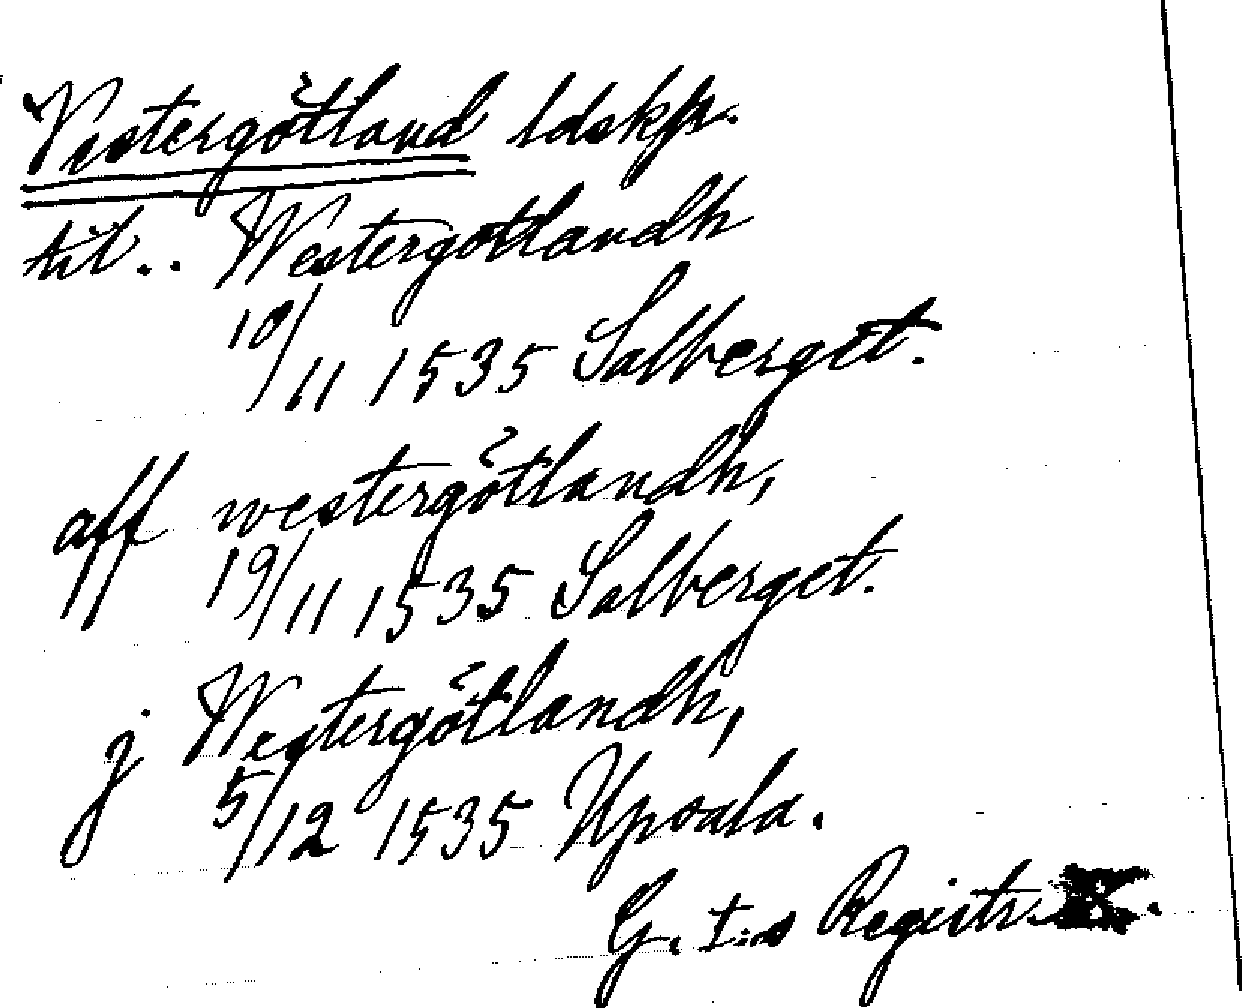 Västergötland ldskp.
til.. Westergötlandh
10/11 1535 Salberget.
aff westergötlandh,
19/11 1535 Salberget.
j Westergötlandh,
5/12 1535 Upsala.
G. I:s Registr. X.